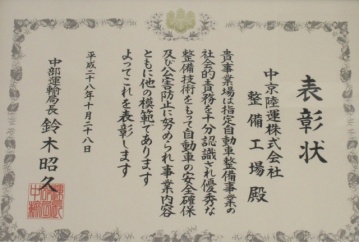 表彰状
中京陸運株式会社
整備工場殿
貴事業場は指定自動車整備事業の
社会的責務を十分認識され優秀な
整備技術をもって自動車の安全確保
及び公害防止に努められ事業内容
ともに他の模範であります
よってこれを表彰します
平成二十八年十月二十八日
中部運輸局長 鈴木昭久